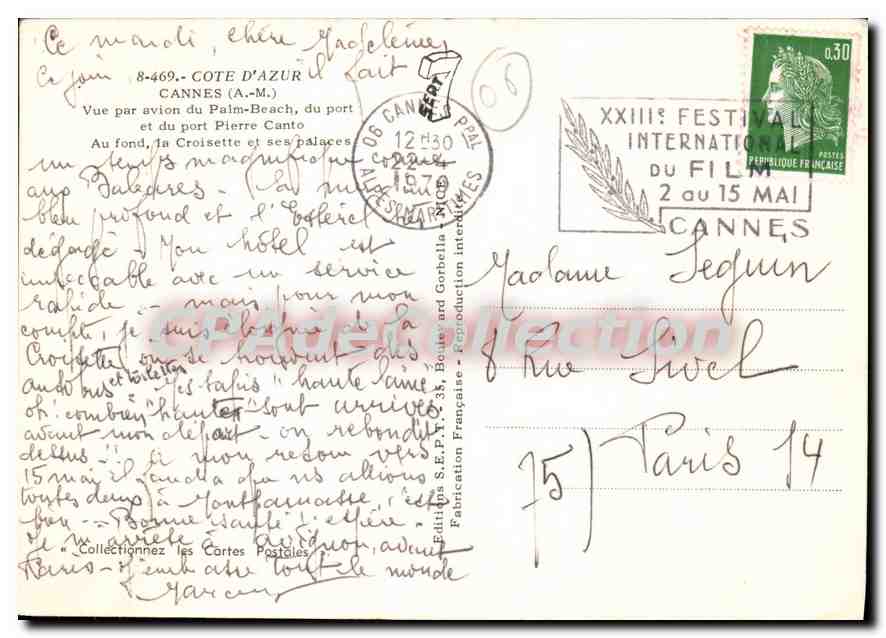 Ce mardi, chère Madeleine,
Ce jour il fait
8-469.- COTE D'AZUR
CANNES (A.-M.)
Vue par avion du Palm-Beach, du port
et du port Pierre Canto
Au fond, la Croisette et ses palaces
un temps magnifique comme
aux Baléares -
bleu profond et l'Esterel
dégagé - Mon hôtel est
impeccable avec un service
rapide - mais pour mon
compte, je suis de la
Croisette, où se des
autobus et toilettes - les tapis "haute laine"
oh! combien "haute" sont arrivés
avant mon départ - on rebondit
dessus!! à mon retour vers
15 mai, il faudra que ns allions
toutes deux à Montparnasse, c'est
bien - Bonne santé j'espère -
Je m'arrête à Avignon, avant
Paris - J'embrasse tout le monde
"Collectionnez les Cartes Postales"
Editions S.E.P.T. - 35, Boulevard Gorbella - NICE
Fabrication Française - Reproduction interdite
SEPT
06
06 CANNES PPAL
12H30
22-4
1970
ALPES-MARITIMES
XXIIIe FESTIVAL
INTERNATIONAL
DU FILM
2 au 15 MAI
CANNES
0,30
POSTES
REPUBLIQUE FRANÇAISE
Madame Seguin
8 Rue Sivel
75) Paris 14
CPAdeCollection